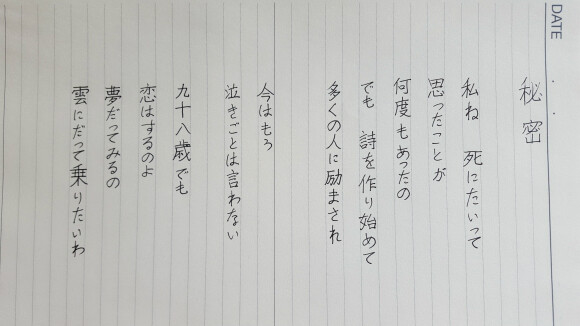 DATE
秘密
私ね 死にたいって
思ったことが
何度もあったの
でも 詩を作り始めて
多くの人に励まされ
今はもう
泣きごとは言わない
九十八歳でも
恋はするのよ
夢だってみるの
雲にだって乗りたいわ